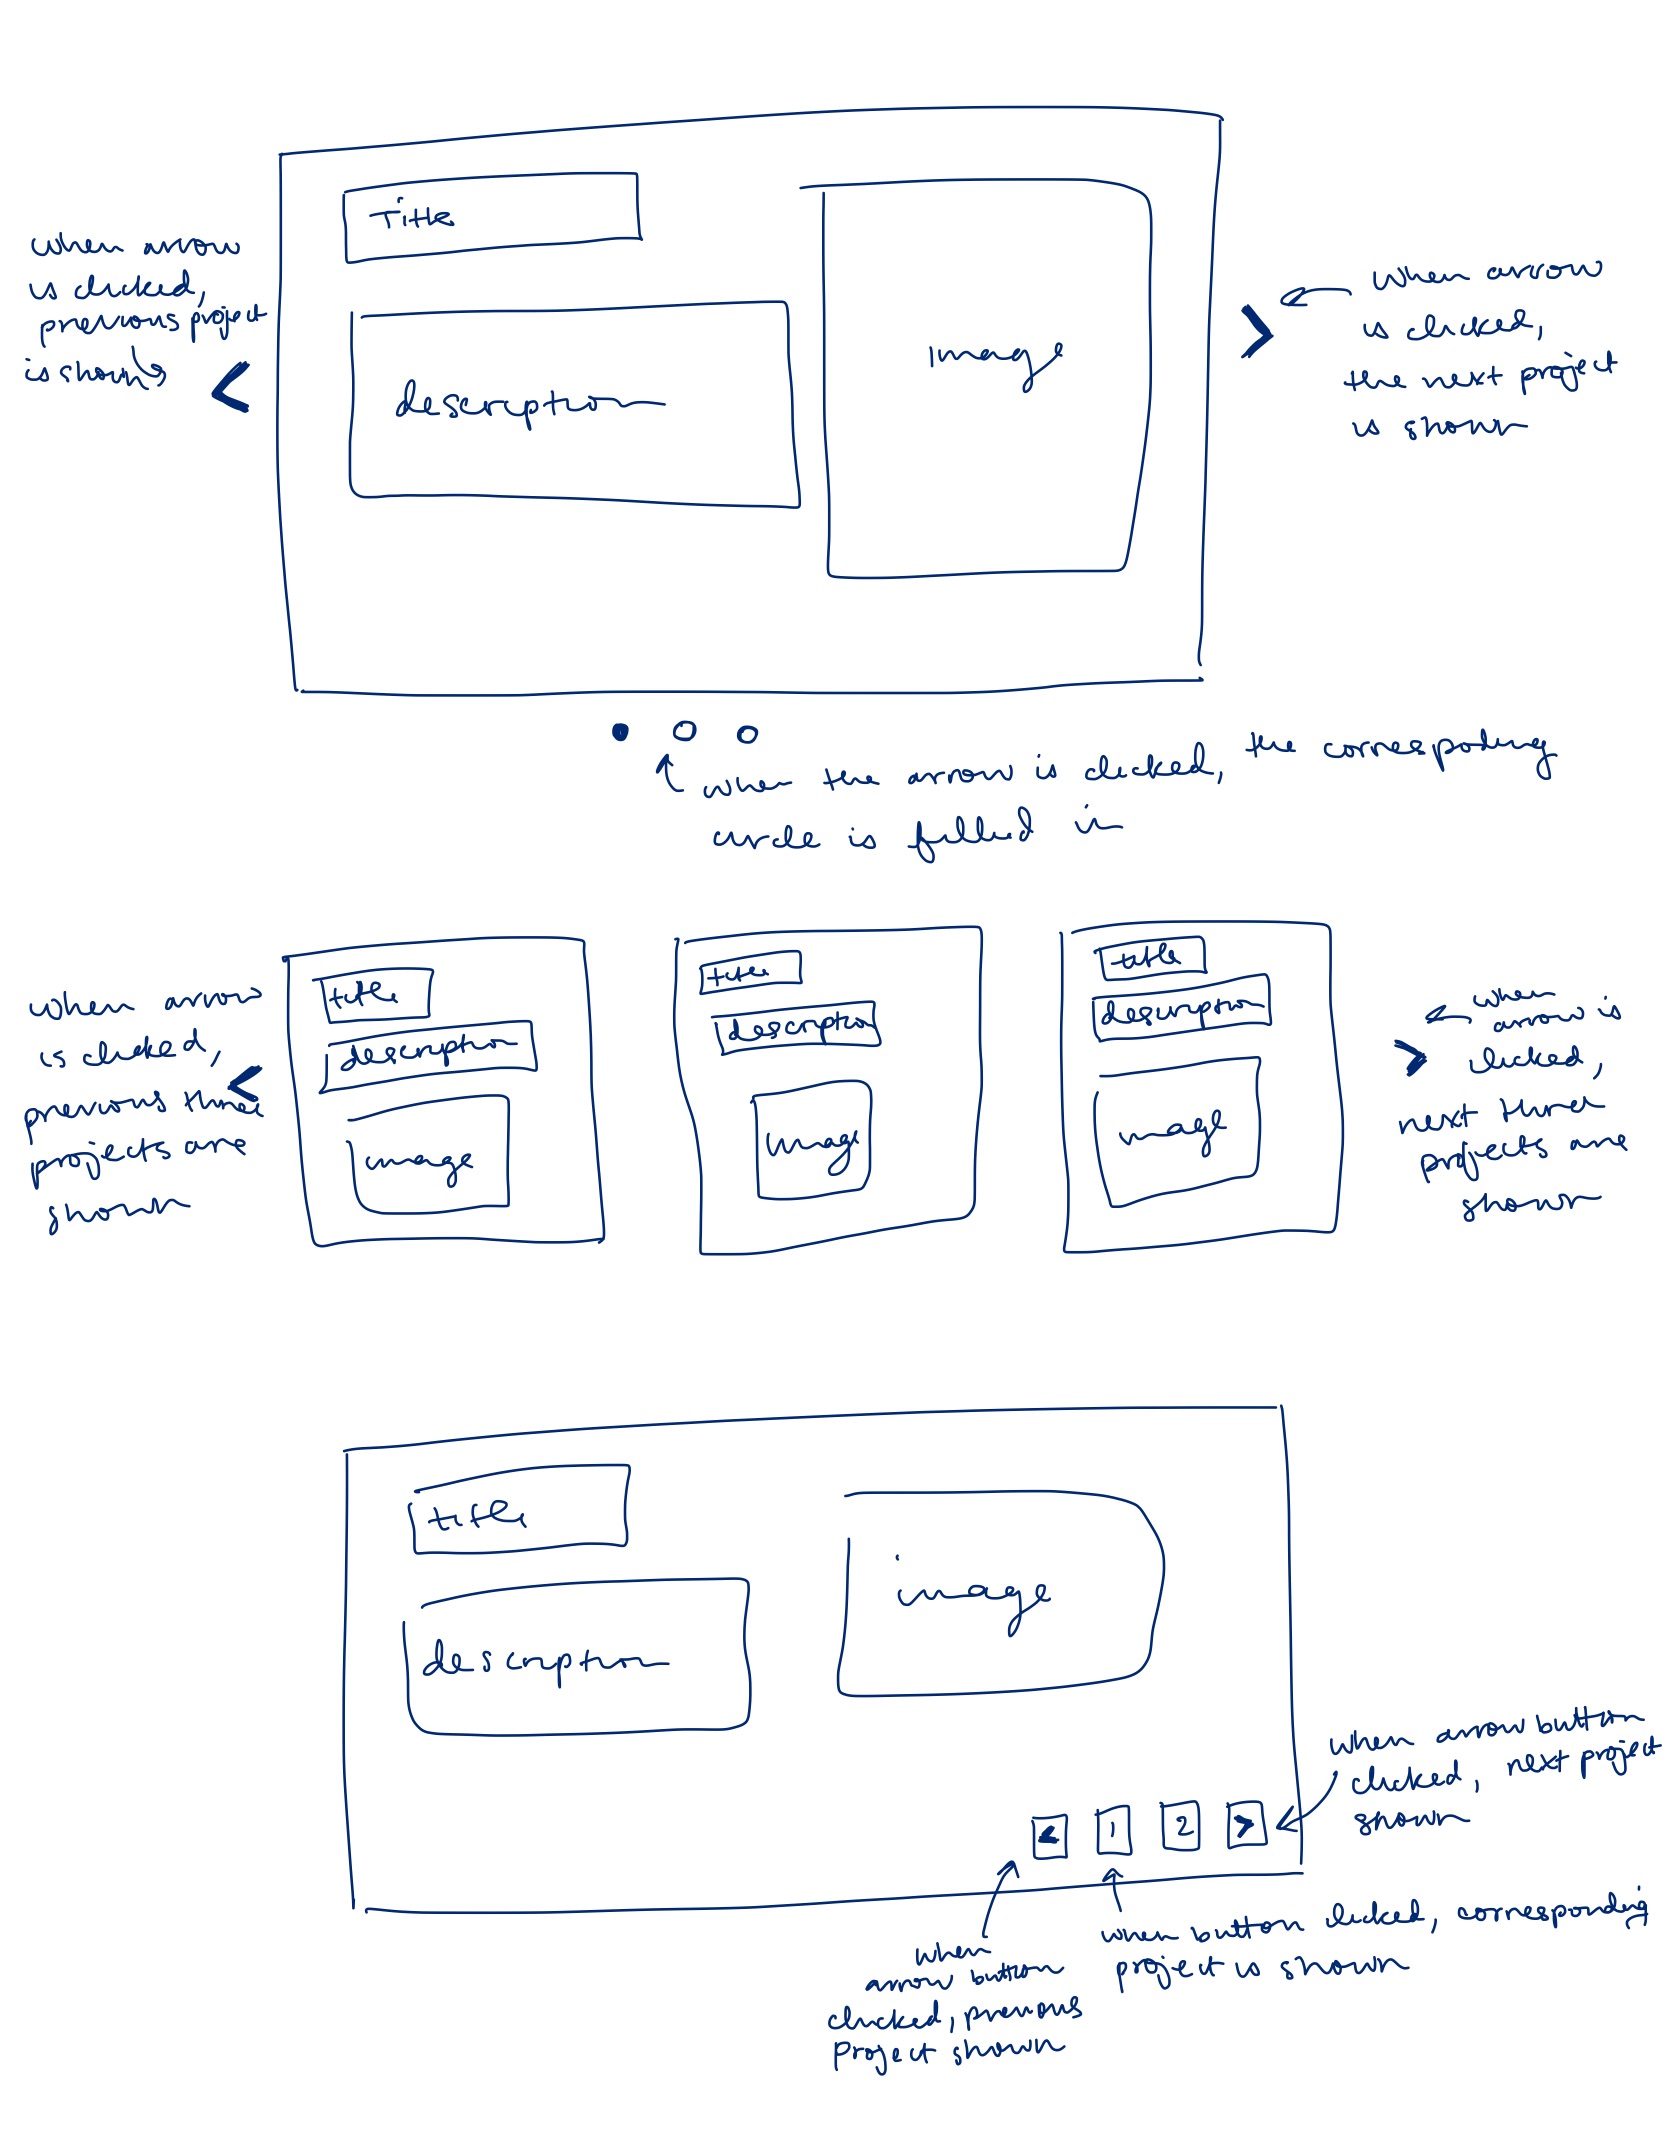 Title
when arrow
is clicked,
previous project
is shown
<
description
image
>
when arrow
is clicked,
the next project
is shown
when the arrow is clicked, the correspoding
circle is filled in
when arrow
is clicked,
previous three
projects are
shown
<
title
description
image
title
description
image
title
description
image
>
when
arrow is
clicked,
next three
projects are
shown
title
description
image
< 1 2 >
when arrow button
clicked, next project
shown
when
arrow button
clicked, previous
project shown
when button clicked, corresponding
project is shown